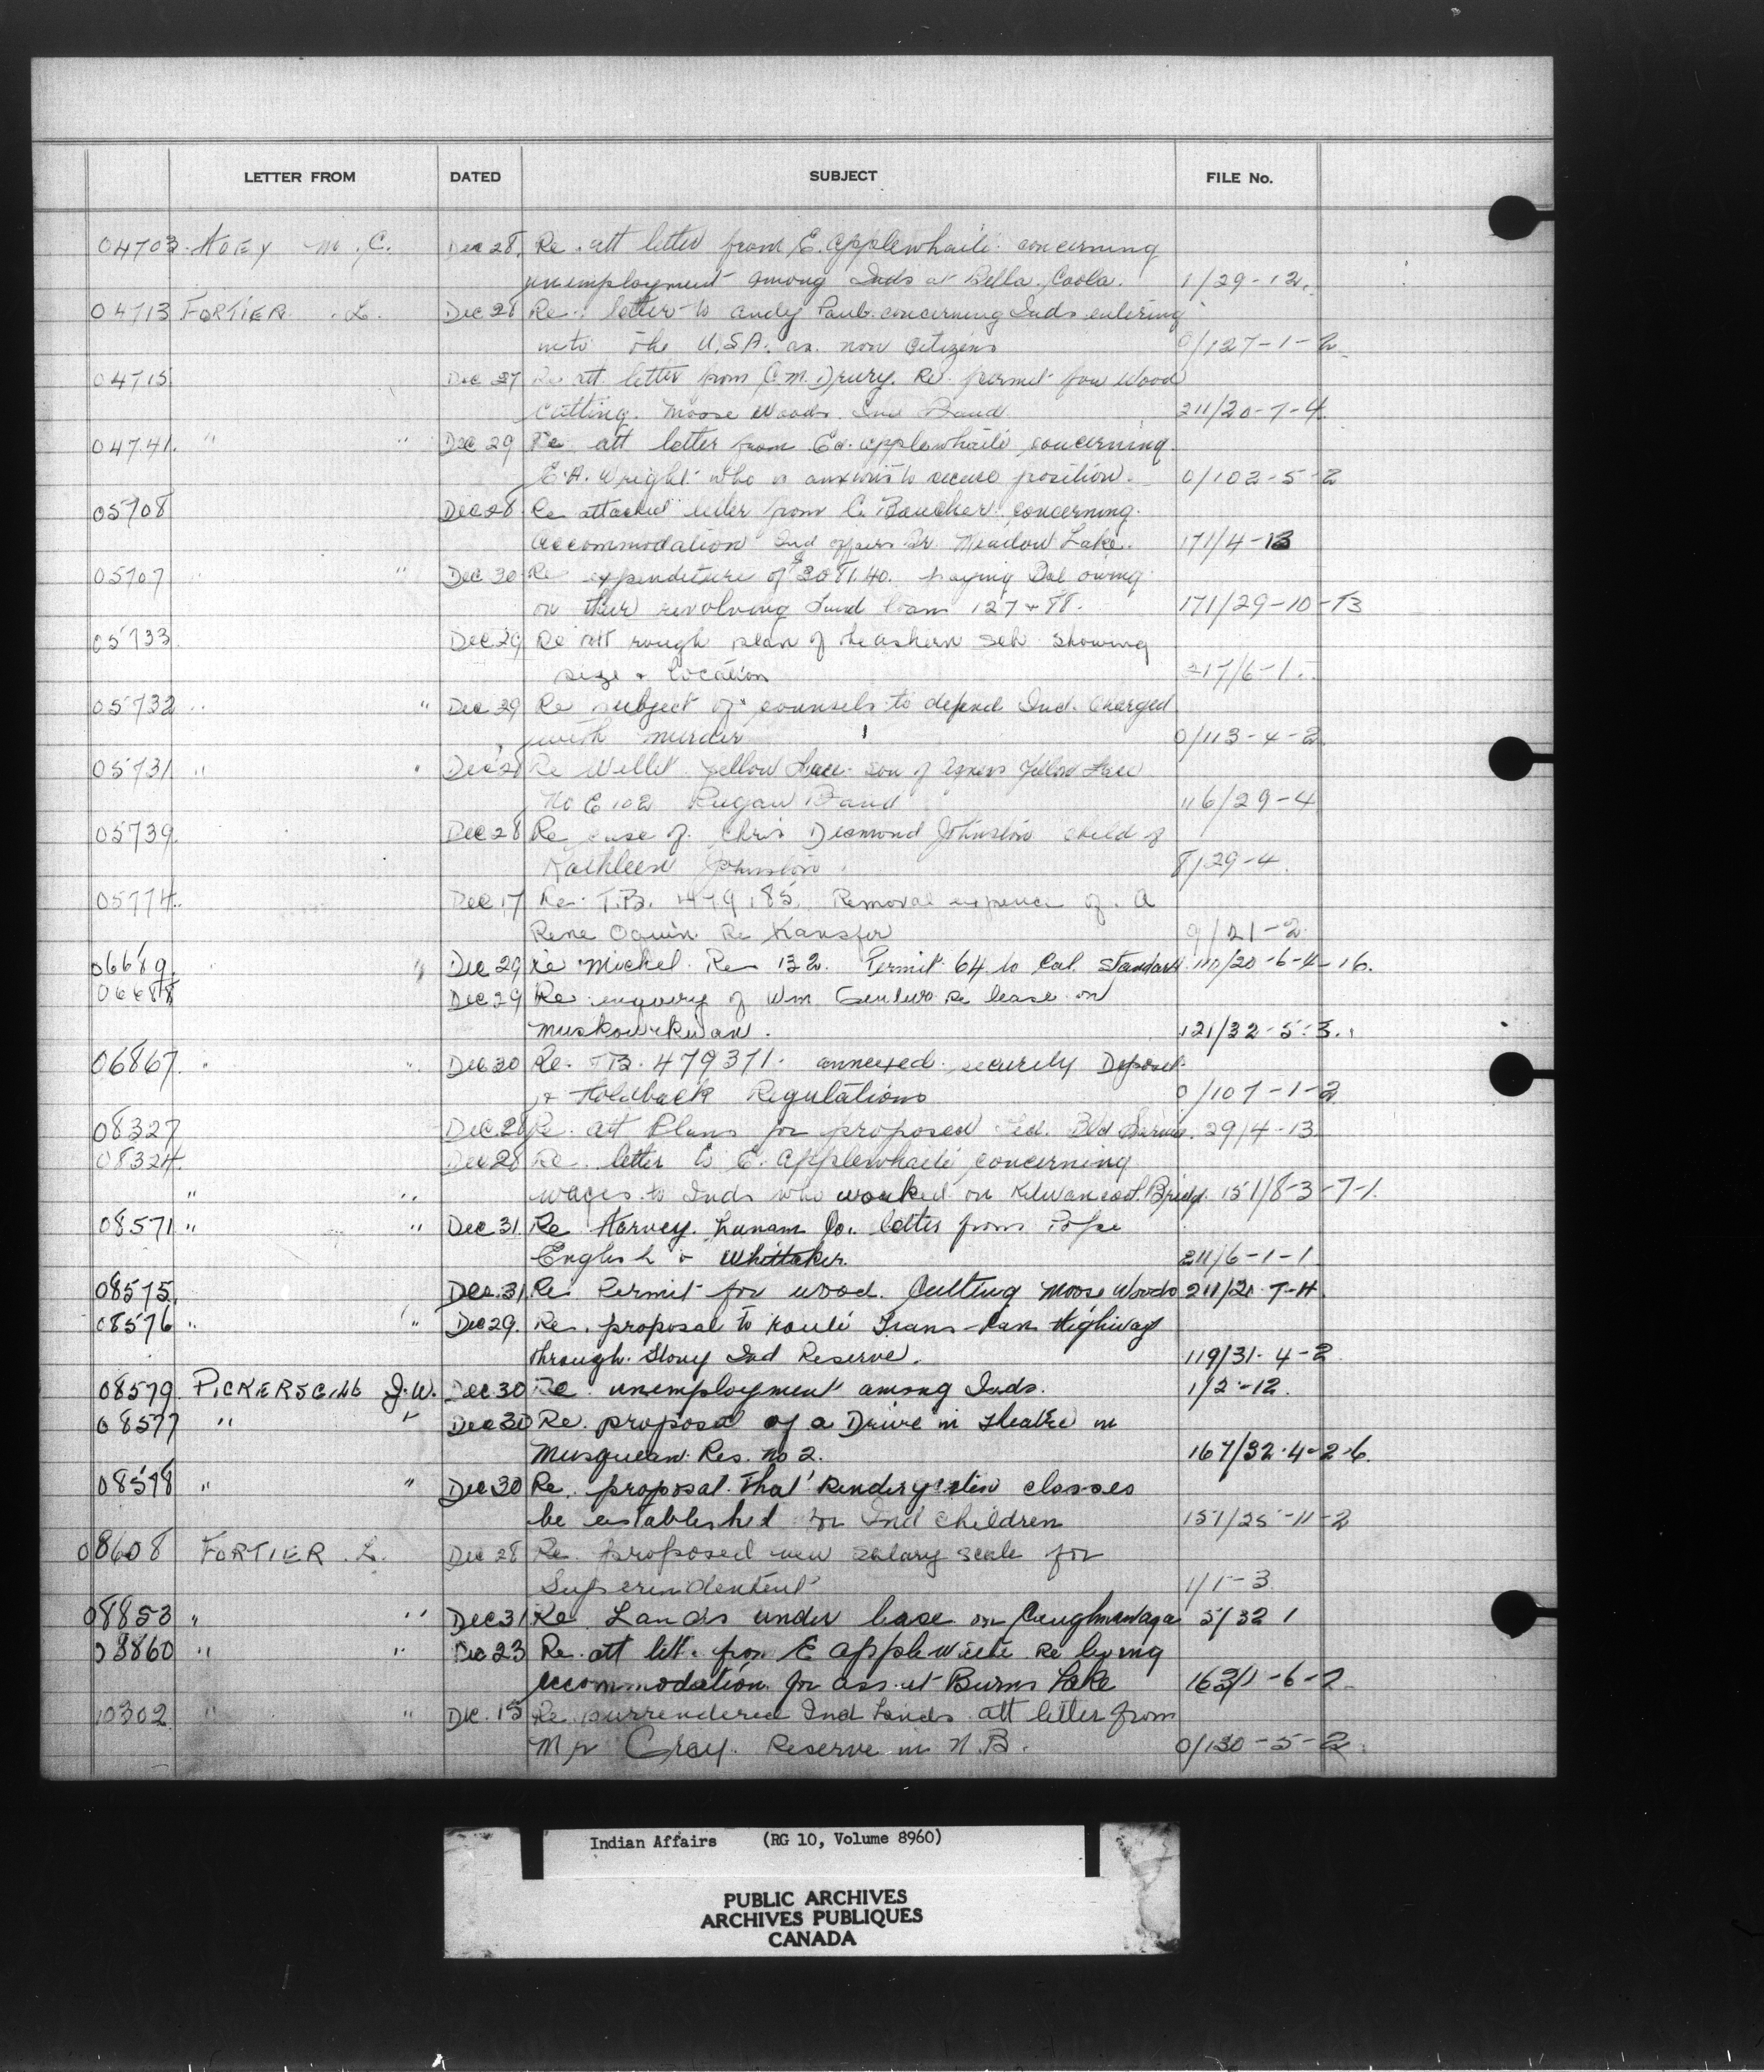 LETTER FROM DATED SUBJECT FILE No.
04703 HOEY M. C. Dec 28. Re. att letter from E. Applewhaite concerning
unemployment among Inds at Bella Coola. 1/29-12.
04713 FORTIER L. Dec 28 Re. letter to Andy Paul concerning Inds entering
into the U.S.A. as non Citizens 0/127-1-2
04715 Dec 27 Re att. letter from C.M. Drury. Re. permit for Wood
Cutting. Moose Woods. Ind Band 211/20-7-4
04741. " " Dec 29 Re att letter from Ed. Applewhaite concerning
E.A. Wright who is anxious to secure position. 0/102-5-2
05708 Dec 28 Re attached letter from C. Boucher concerning
accommodation Ind affairs Br. Meadow Lake. 171/4-13
05707 " " Dec 30 Re expenditure of $3081.40. paying Bal owing
on their revolving fund loans 127 + 88. 171/29-10-13
05733 Dec 29 Re att rough plan of the ashern Sch showing
size + location 217/6-1
05732 " " Dec 29 Re subject of counsels to defend Ind. Charged
with murder 0/113-4-2
05731 " " Dec 28 Re Yellow Face son of Agnes Yellow Face
No E 102 Piegan Band 116/29-4
05739. Dec 28 Re case of Chris Desmond Johnston child of
Kathleen Johnston. 8/29-4
05774. Dec 17 Re. T.B. 479185. Removal expence of A
Rene Oguin Re Transfer 9/21-2
06689. " Dec 29 Re Michel Res 132. Permit 64 to Cal. Standard 110/20-6-4-16.
06688 Dec 29 Re enquiry of Wm re lease on
Muskowekwan. 121/32-5-3.
06867. " " Dec 30 Re. T.B. 479371. annexed security Deposit
+ Holdback Regulations 0/107-1-2
08327 Dec 28 Re. att Plans for proposed Fed. Bld 29/4-13
08324 Dec 28 Re. letter to E. Applewhaite concerning
" " wages to Inds who worked on Kitwancool Bridge 151/8-3-7-1.
08571 " " Dec 31 Re Harvey. Lunam Co. letter from Pope
English & Whittaker. 211/6-1-1
08575. Dec. 31. Re. Permit for wood. Cutting Moose Woods 211/20-7-4
08576 " " Dec 29. Re. proposal to route Trans-Can Highway
through Stony Ind Reserve. 119/31-4-2
08579. PICKERSGILL J.W. Dec 30 Re. unemployment among Inds. 1/2-12.
08577 " " Dec 30 Re. proposal of a Drive in theatre in
Musqueam Res. No 2. 167/32-4-2-6.
08578 " " Dec 30 Re. proposal that kindergarten classes
be established for Ind children 151/25-11-2
08608 FORTIER L. Dec 28 Re. proposed new salary scale for
Superindentent 1/1-3
08853 " " Dec 31 Re Lands under lease on Caughnawaga 5/32 1
08860 " " Dec 23 Re. att lett. from E Applewaite Re living
accommodation for ass. at Burns Lake 163/1-6-2
10302 " " Dec. 15 Re surrendered Ind Lands att letter from
Mr Gray. Reserve in N.B. 0/130-5-2
Indian Affairs (RG 10, Volume 8960)
PUBLIC ARCHIVES
ARCHIVES PUBLIQUES
CANADA